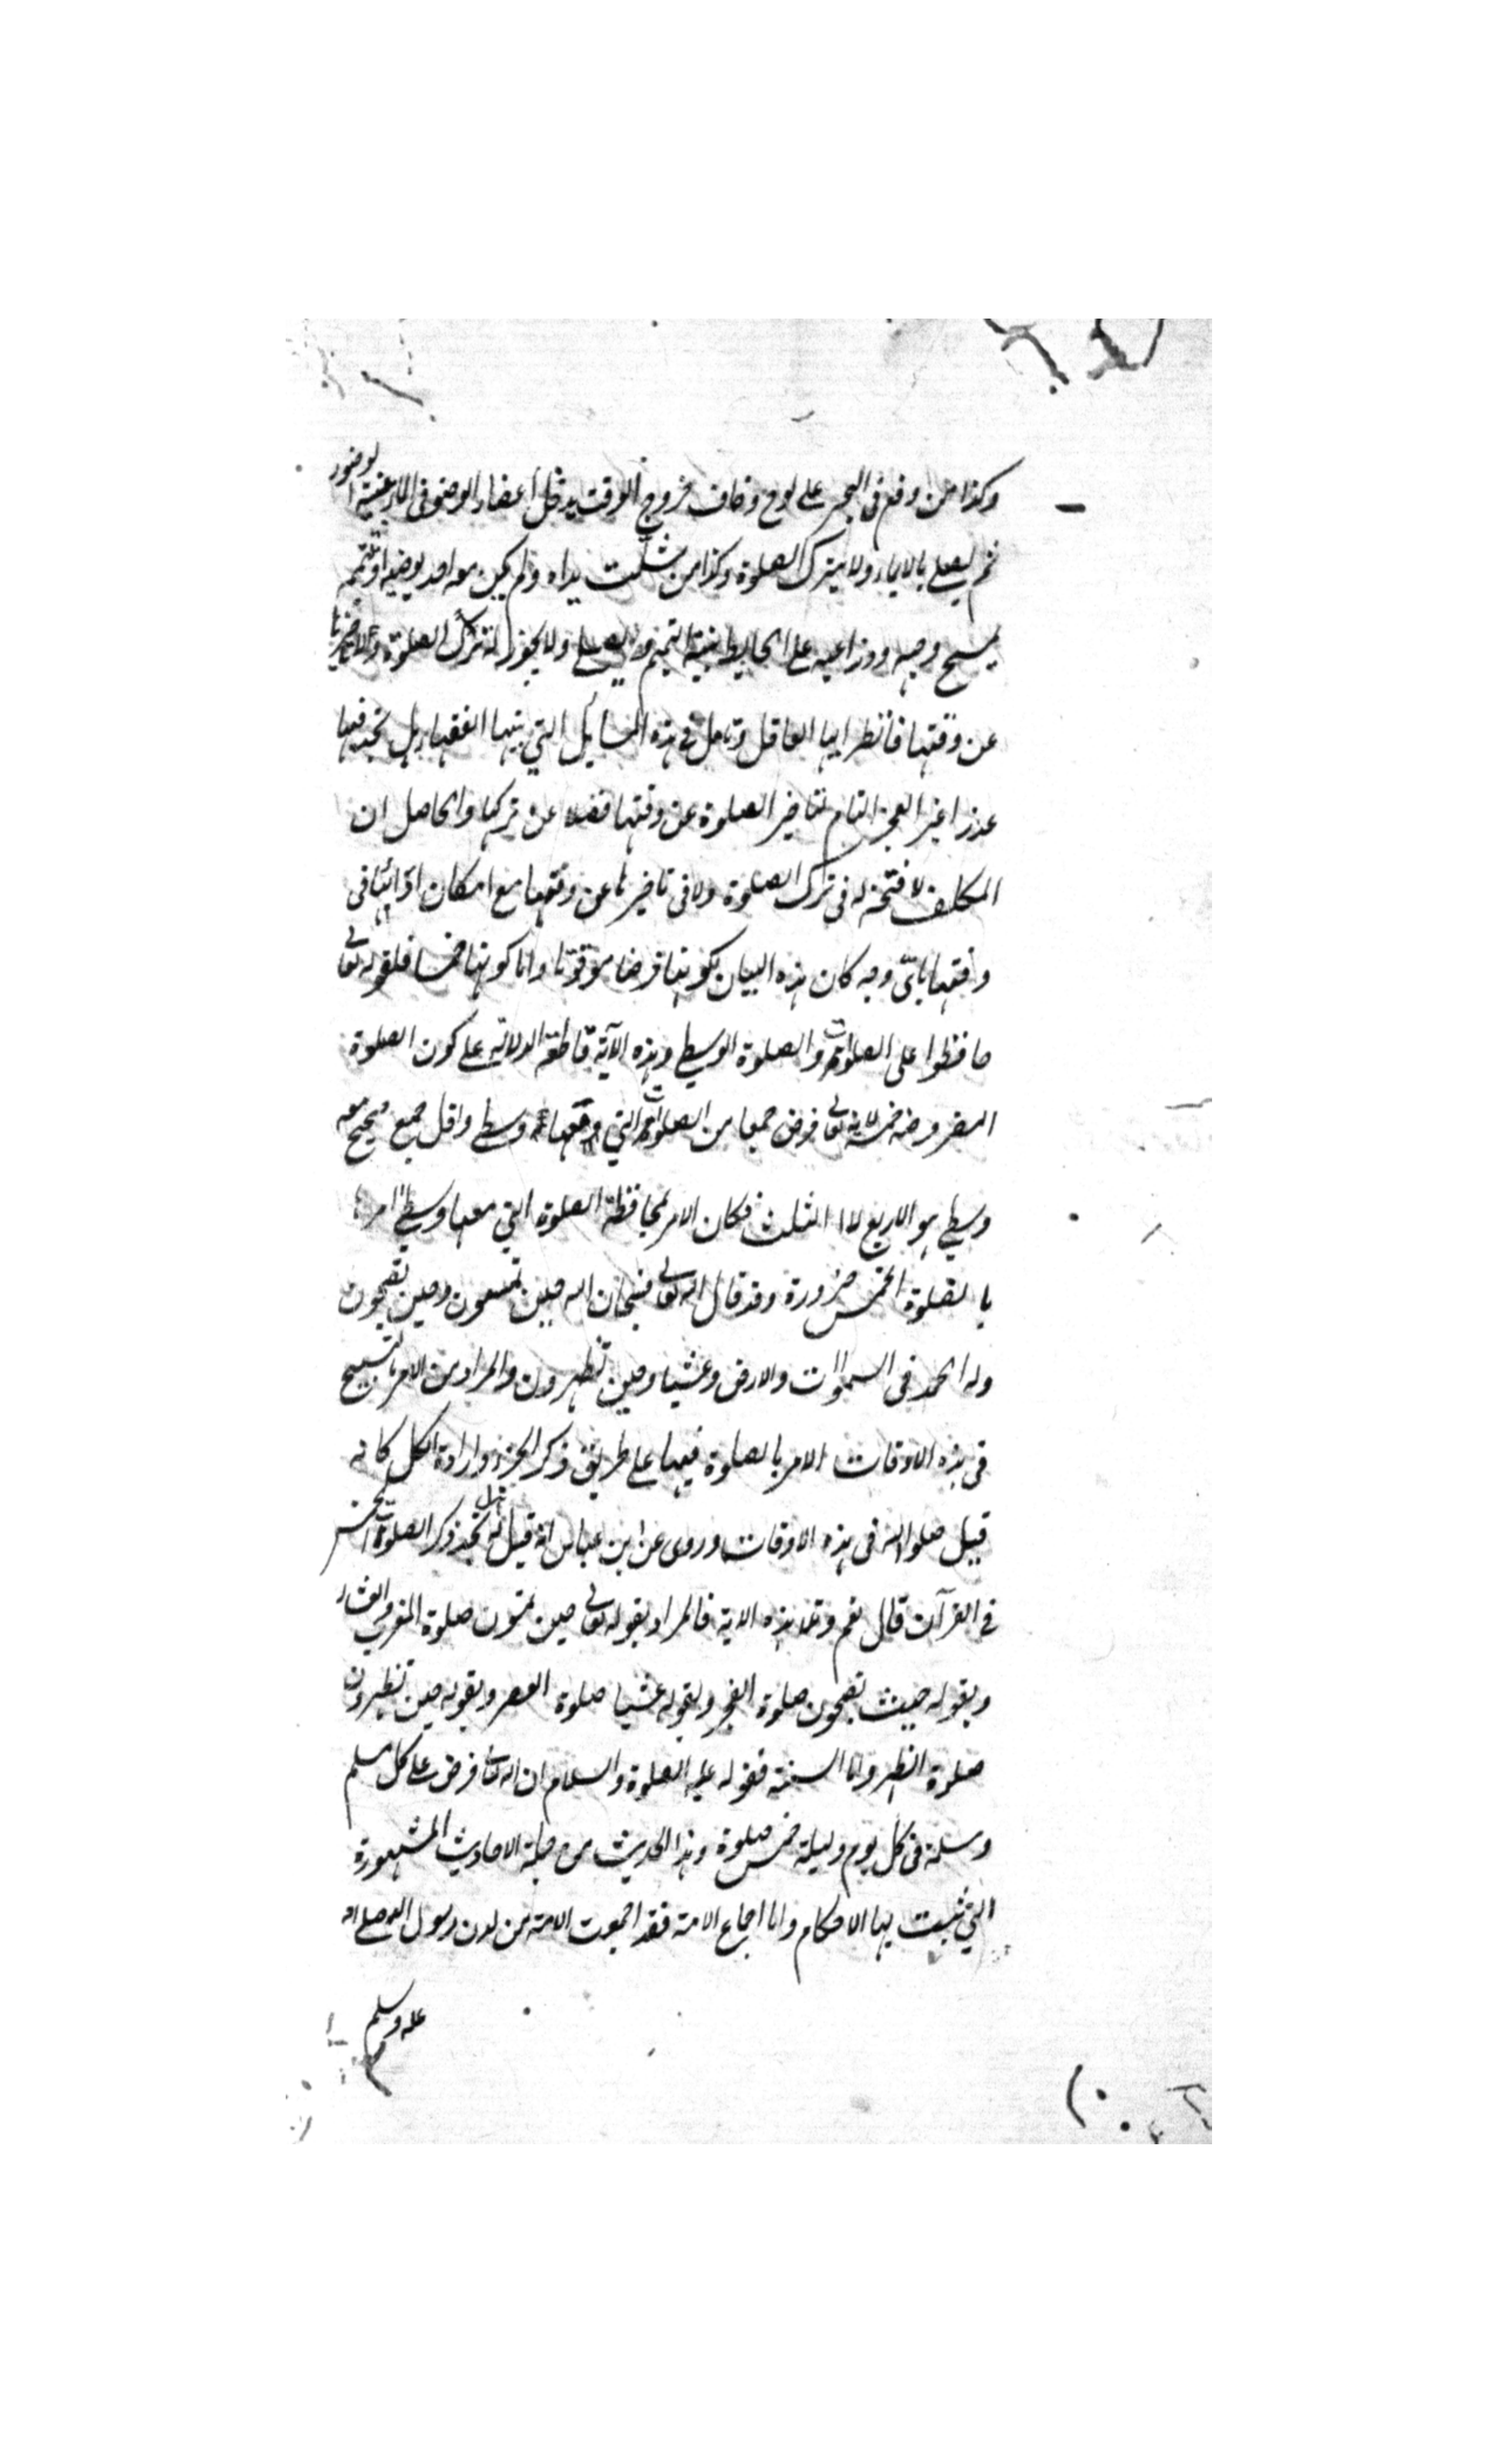 وكذا من وقع فى البحر على لوح وخاف خروج الوقت يدخل اعضاء الوضو فى الماء بنية الوضوء
ثم يصلى بالايماء ولا يترك الصلوة وكذا من شلت يداه ولم يكن معه احد يوضيه او ييممه
يمسح وجهه وذراعيه على الحايط بنية التيمم ويصلى ولا يجوز له ترك الصلوة ولا تاخيرها
عن وقتها فانظر ايها العاقل وتامل فى هذه المسايل التي بينها الفقهاء هل تجد فيها
عذرا غير العجز التام لتاخير الصلوة عن وقتها فضلا عن تركها والحاصل ان
المكلف لا فتحة له فى ترك الصلوة ولا فى تاخيرها عن وقتها مع امكان ادائها فى
وقتها باىّ وجه كان هذه البيان بكونها فرضا موقوتا واما كونها خمسا فلقوله تعالى
حافظوا على الصلوات والصلوة الوسطى وهذه الآية قاطعة الدلالة على كون الصلوة
المفروضة خمسة لانه تعالى فرض جمعا من الصلوات التي معها وسطى واقل جمع صحيح معه
وسطى هو الاربع لا الثلث فكان الامر بمحافظة الصلوة التي معها وسطى امرا
بالصلوة الخمس ضرورة وقد قال الله تعالى فسبحان الله حين تمسون وحين تصبحون
وله الحمد فى السموات والارض وعشيا وحين تظهرون والمراد من الامر بالتسبيح
فى هذه الاوقات الامر بالصلوة فيها على طريق ذكر الجزء وارادة الكل كانه
قيل صلوا لله فى هذه الاوقات وروى عن ابن عباس انه قيل له هل تجد ذكر الصلوة الخمس
فى القرآن قال نعم وتلا هذه الاية فالمراد بقوله تعالى حين تمسون صلوة المغرب والعشاء
وبقوله حيث تصبحون صلوة الفجر وبقوله عشيا صلوة العصر وبقوله حين تظهرون
صلوة الظهر واما السنة فقوله عليه الصلوة والسلام ان الله تعالى فرض على كل مسلم
ومسلمة فى كل يوم وليلة خمس صلوة وهذا الحديث من جملة الاحاديث المشهورة
التي ثبت بها الاحكام واما اجماع الامة فقد اجمعت الامة من لدن رسول الله صلى الله
عليه وسلم